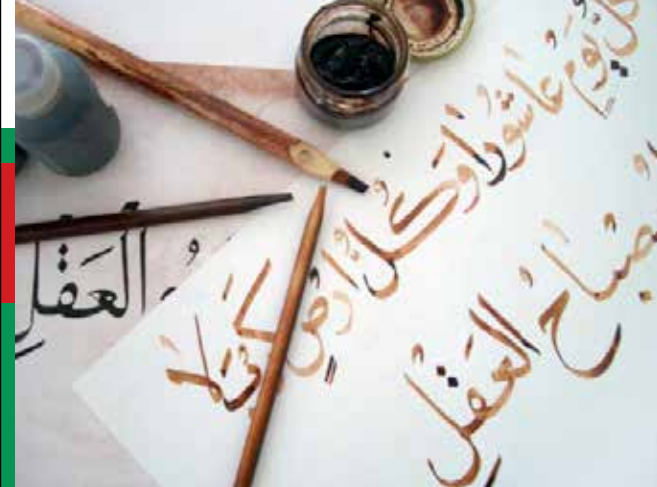 كل يوم عاشورا وكل ارض كربلا
صباح العقل
العَقلِ